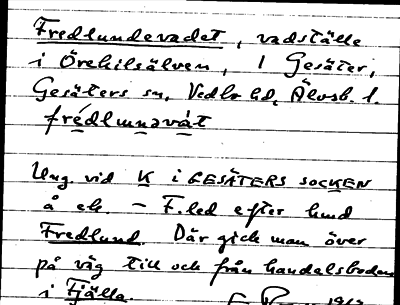 Fredlundevadet, vadställe
i Örekilsälven, i Gesäter,
Gesäters sn, Vedbo hd, Älvsb. l.
frédlunəvát
Ung. vid K i GESÄTERS SOCKEN
å ek. – F.led efter hmd
Fredlund. Där gick man över
på väg till och från handelsboden
i Fjälla.